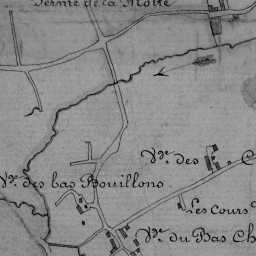 Ferme de la Motte
Vge. des C
Vge. des bas Bouillons.
Les cours
Vge. du Bas Ch